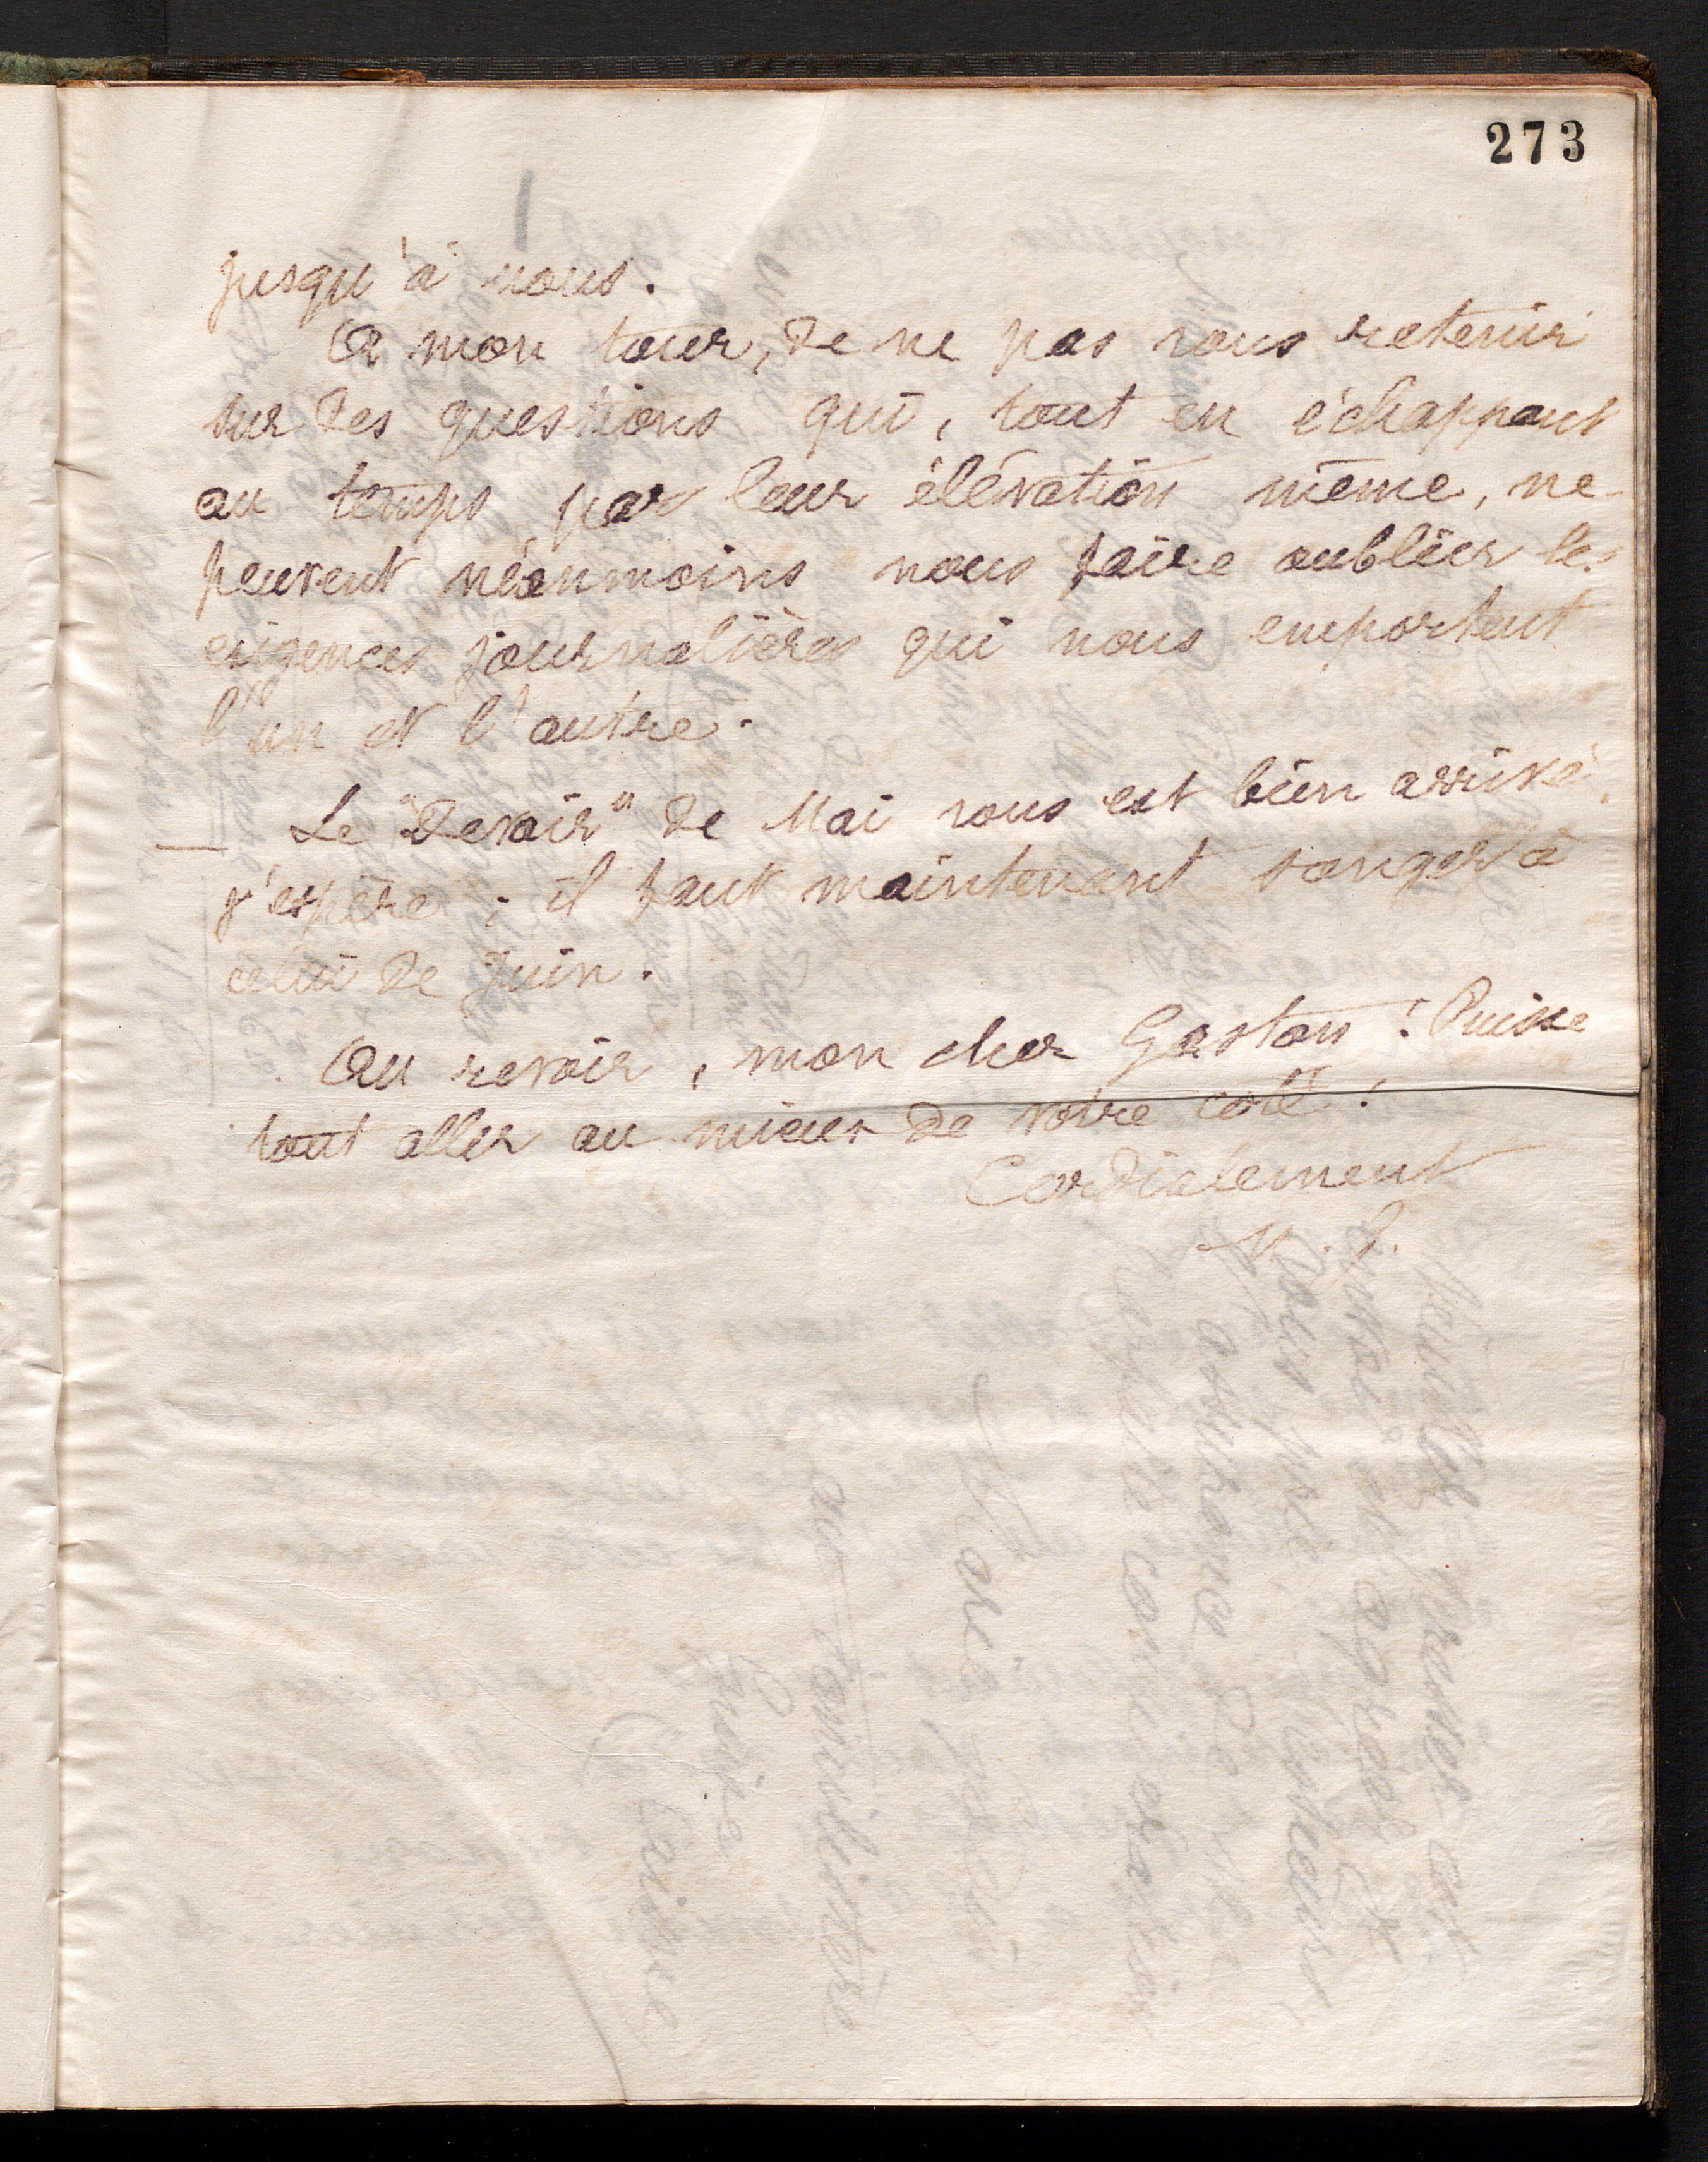 273
jusqu'à nous.
A mon tour, de ne pas vous retenir
sur des questions qui, tout en échappant
au temps par leur élévation même, ne
peuvent néanmoins nous faire oublier les
exigences journalières qui nous emportent
l'un et l'autre.
Le "Devoir" de Mai vous est bien arrivé,
j'espère ; il faut maintenant songer à
celui de Juin.
Au revoir, mon cher Gaston ! Puisse
tout aller au mieux de votre côté !
Cordialement